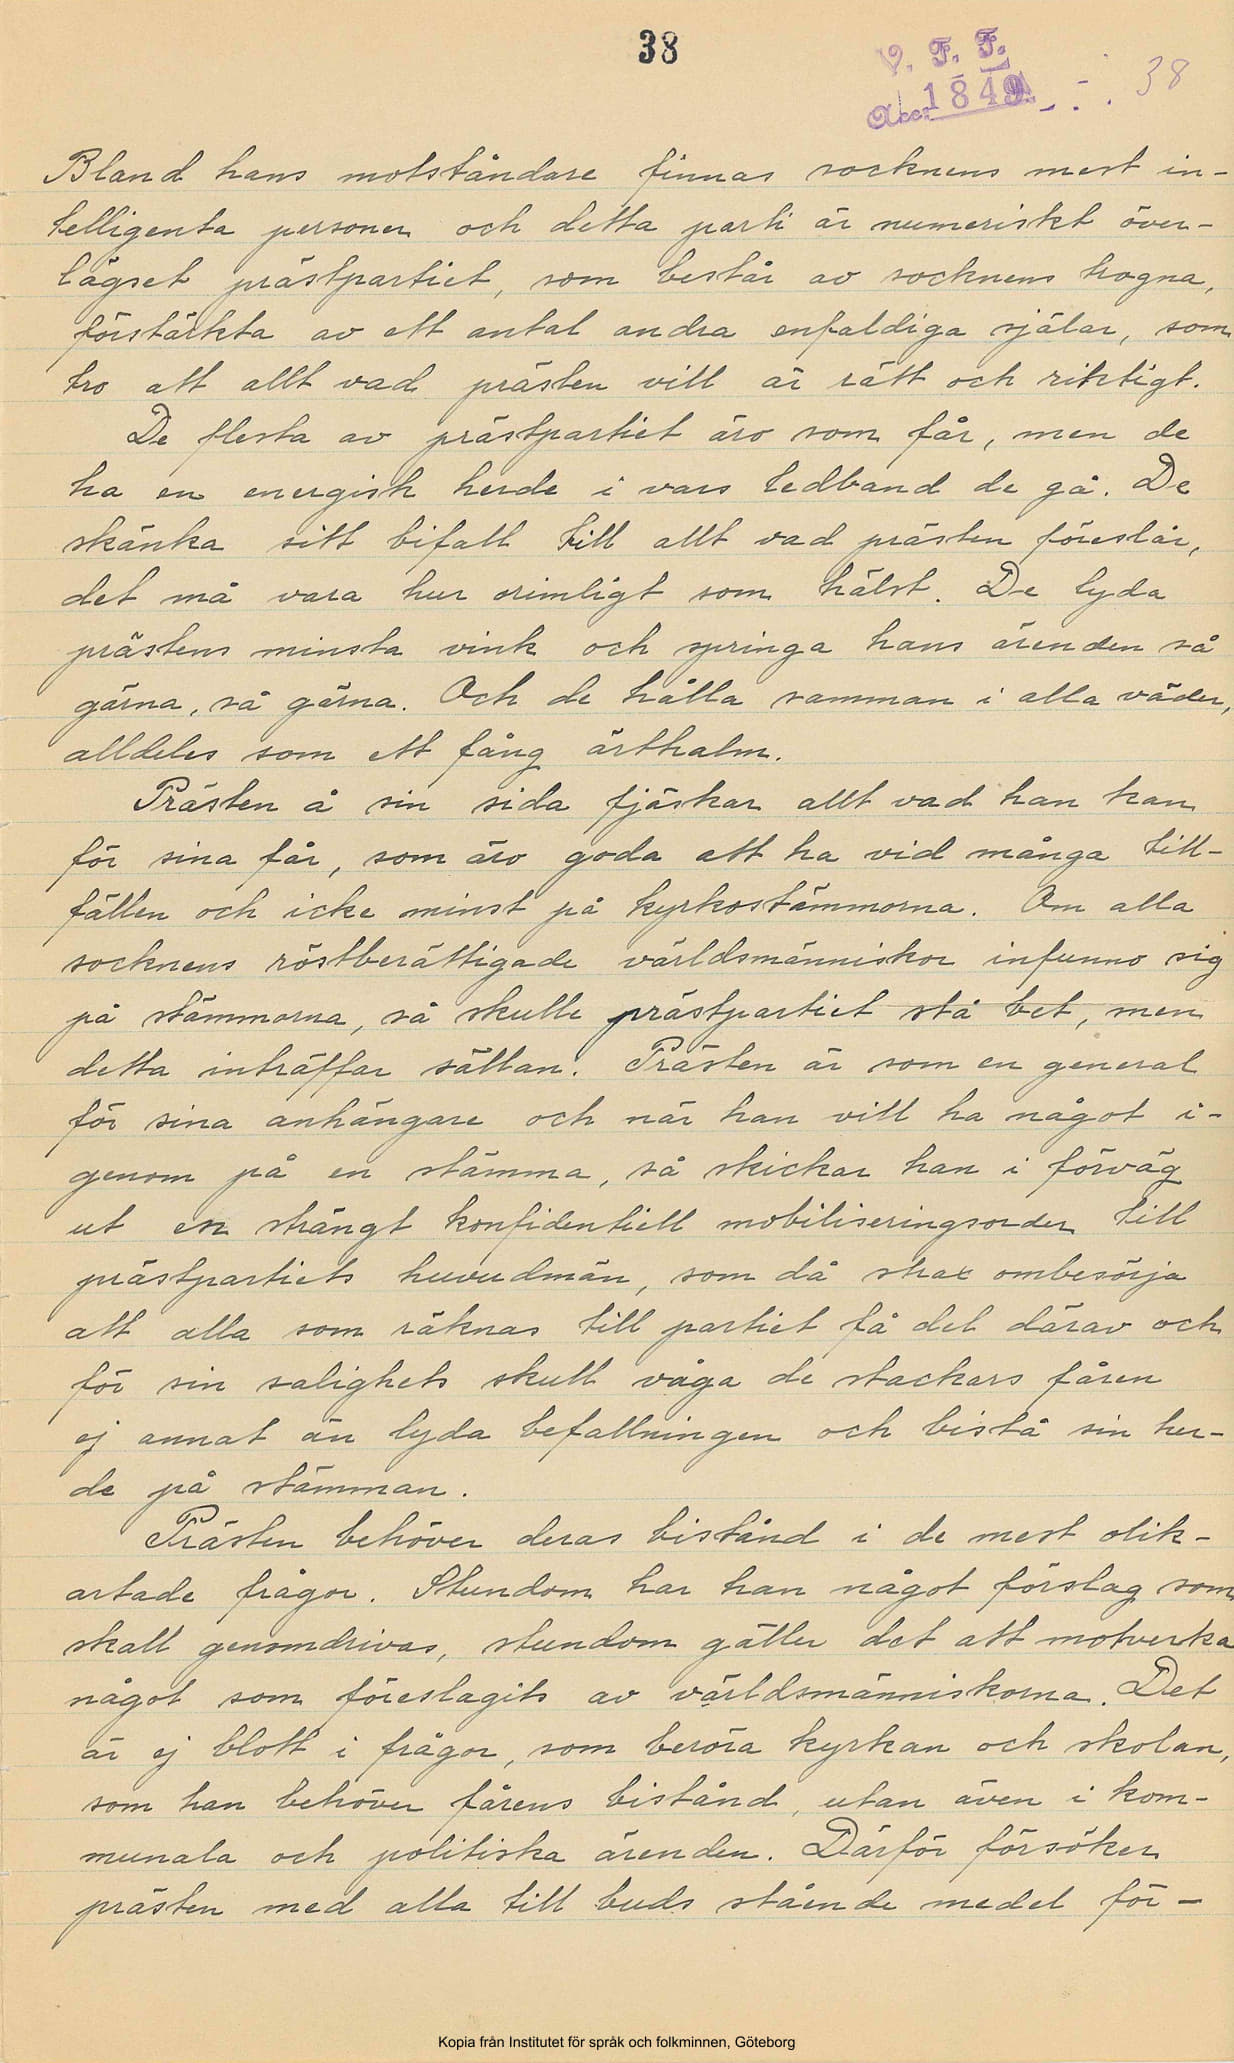 38
V. F. F.
Acc. 1849. 38
Bland hans motståndare finnas socknens mest in-
telligenta personer och detta parti är numeriskt över-
lägset prästpartiet, som består av socknens trogna,
förstärkta av ett antal andra enfaldiga själar, som
tro att allt vad prästen vill är rätt och riktigt.
De flesta av prästpartiet äro som får, men de
ha en energisk herde i vars ledband de gå. De
skänka sitt bifall till allt vad prästen föreslår,
det må vara hur orimligt som hälst. De lyda
prästens minsta vink och springa hans ärenden så
gärna, så gärna. Och de hålla samman i alla väder,
alldeles som ett fång ärthalm.
Prästen å sin sida fjäskar allt vad han kan
för sina får, som äro goda att ha vid många till-
fällen och icke minst på kyrkostämmorna. Om alla
socknens röstberättigade världsmänniskor infunno sig
på stämmorna, så skulle prästpartiet stå bet, men
detta inträffar sällan. Prästen är som en general
för sina anhängare och när han vill ha något i-
genom på en stämma, så skickar han i förväg
ut en strängt konfidentiell mobiliseringsorder till
prästpartiets huvudmän, som då skal ombesörja
att alla som räknas till partiet få del därav och
för sin salighets skull våga de stackars fåren
ej annat än lyda befallningen och bistå sin her-
de på stämman.
Prästen behöver deras bistånd i de mest olik-
artade frågor. Stundom har han något förslag som
skall genomdrivas, stundom gäller det att motverka
något som föreslagits av världsmänniskorna. Det
är ej blott i frågor, som beröra kyrkan och skolan,
som han behöver fårens bistånd, utan även i kom-
munala och politiska ärenden. Därför försöker
prästen med alla till buds stående medel för-
Kopia från Institutet för språk och folkminnen, Göteborg